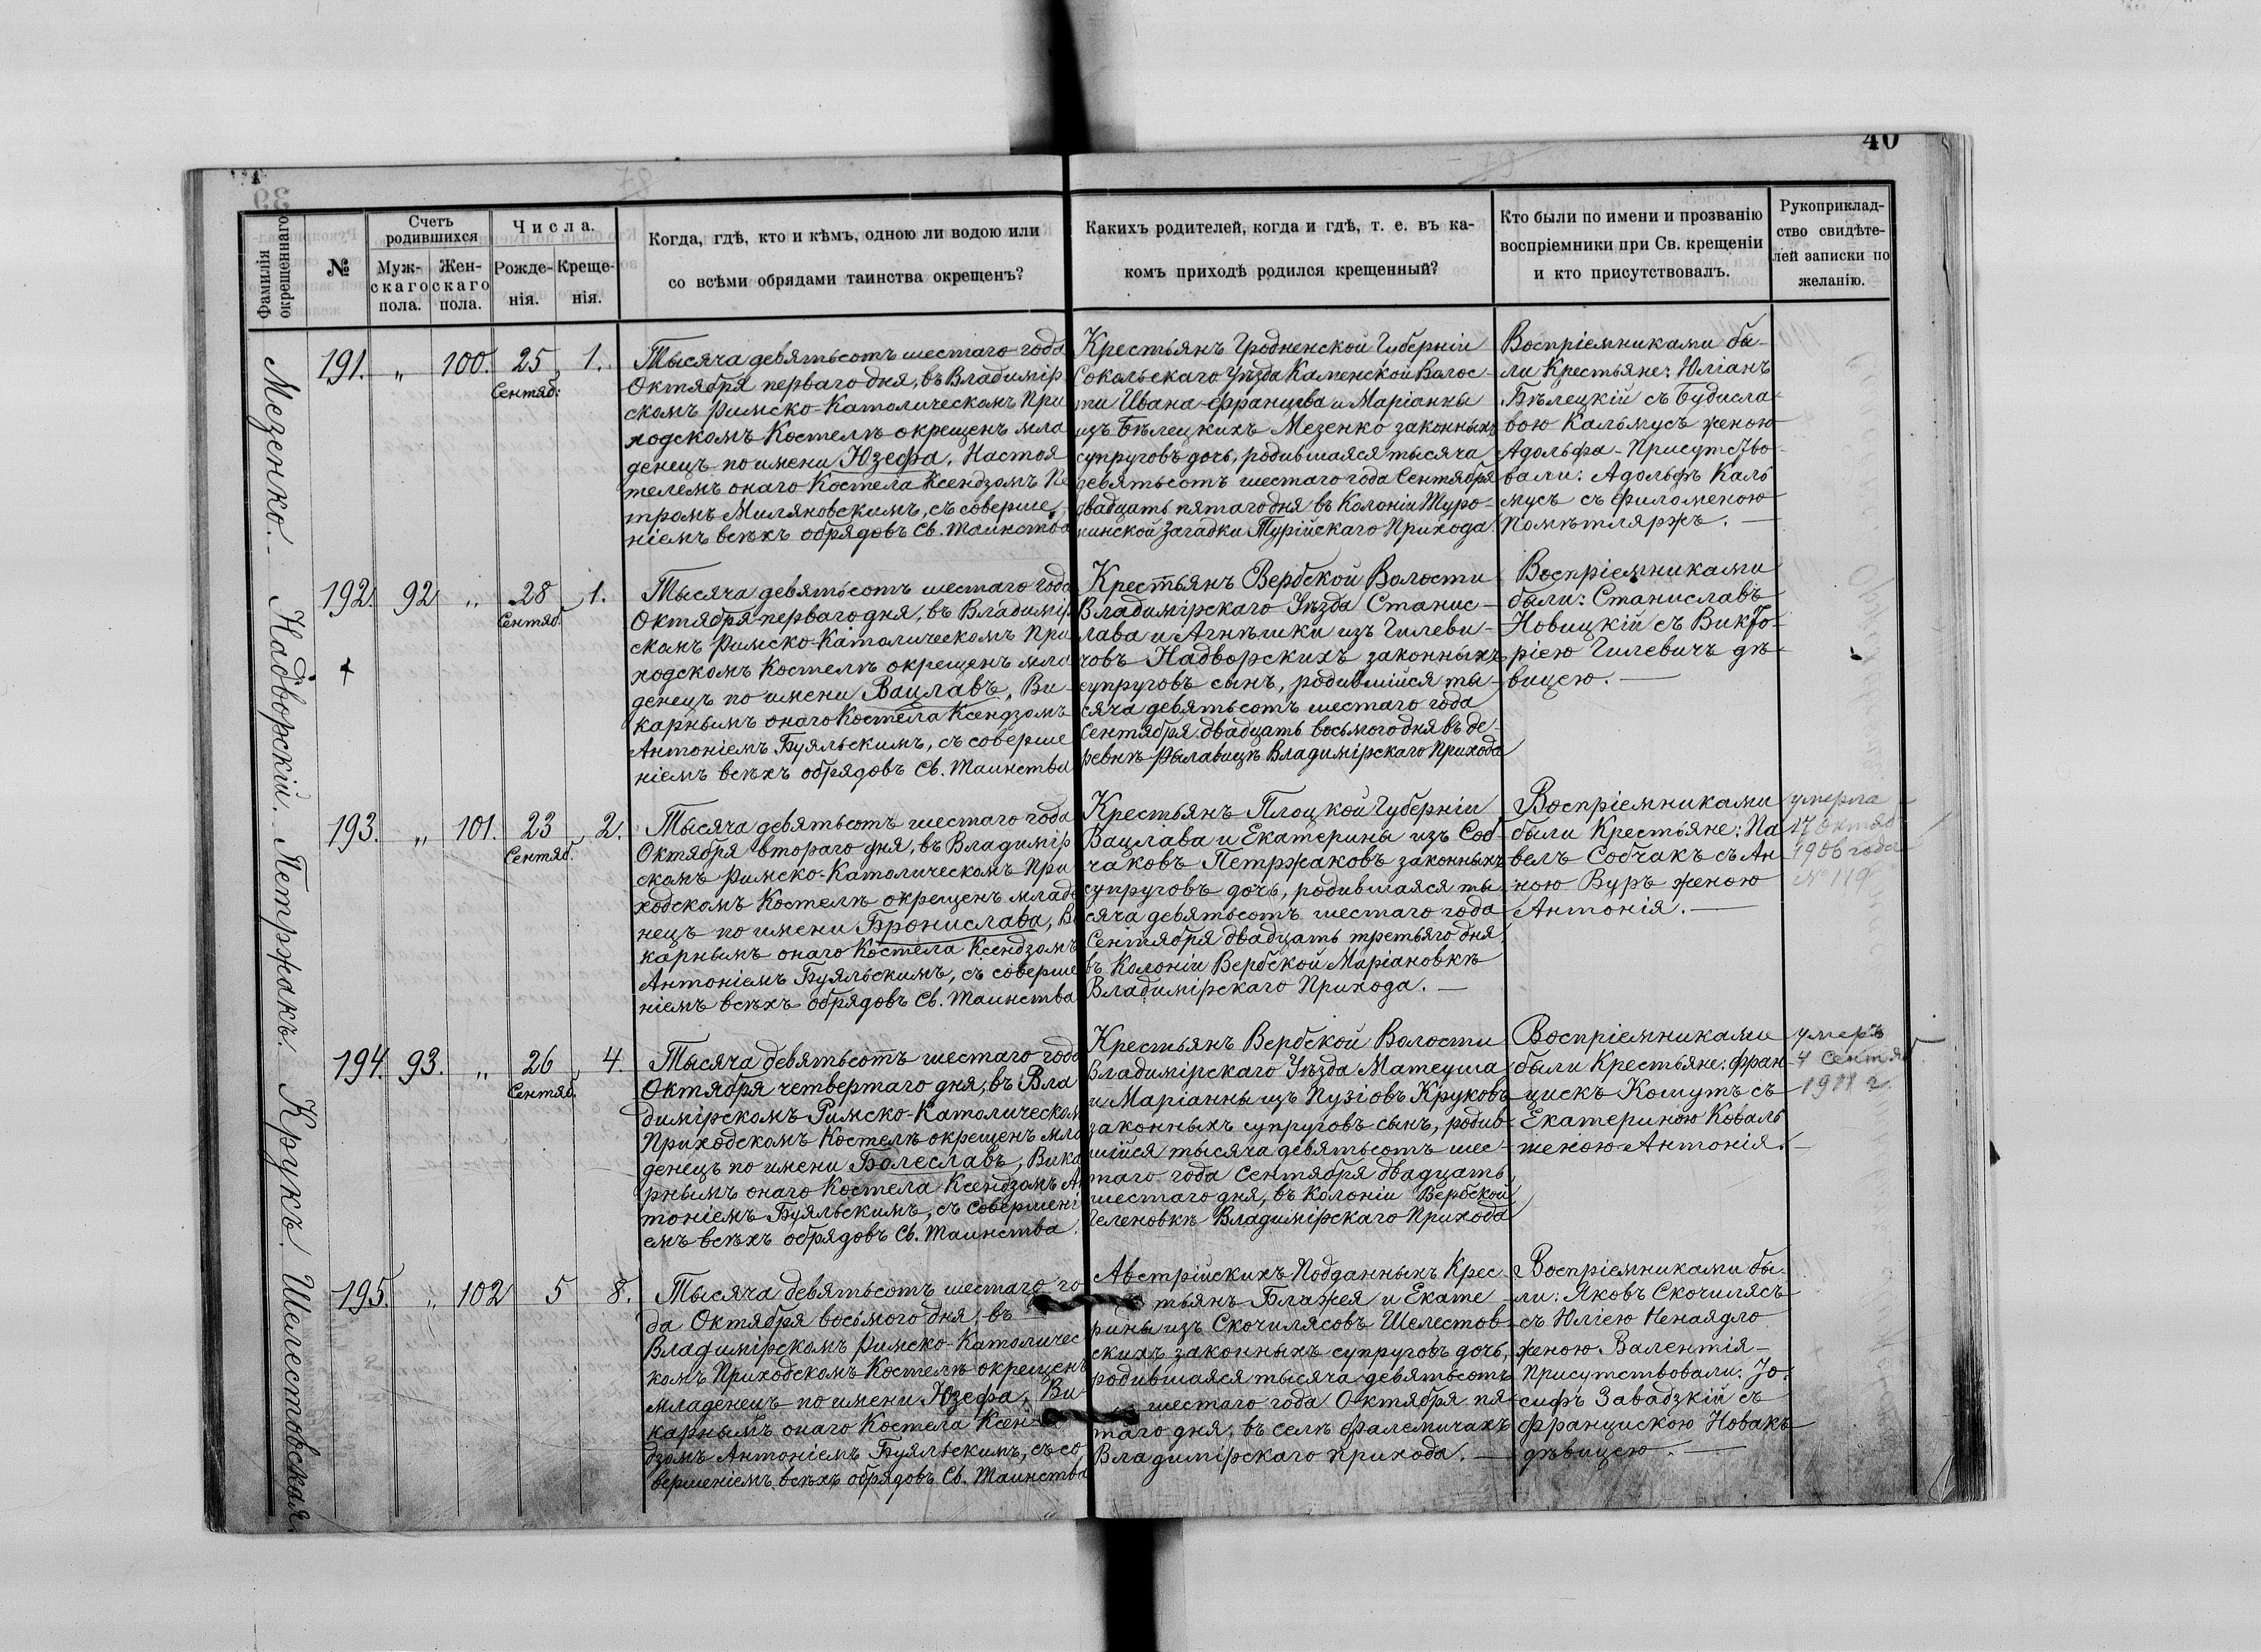 40
Фамилія окрещеннаго
№
Счетъ родившихся
Мужскаго пола.
Женскаго пола.
Числа.
Рожденія.
Крещенія.
Когда, гдѣ, кто и кѣмъ, одною ли водою или
со всѣми обрядами таинства окрещенъ?
Какихъ родителей, когда и гдѣ, т. е. въ ка-
комъ приходѣ родился крещенный?
Кто были по имени и прозванію
воспріемники при Св. крещеніи
и кто присутствовалъ.
Рукоприклад-
ство свидѣте-
лей записки по
желанію.
Мезенко.
191. " 100. 25 Сентяб: 1.
Тысяча девятьсотъ шестаго года
Октября перваго дня, въ Владимір
скомъ Римско-Католическомъ При
ходскомъ Костелѣ окрещенъ мла
денецъ по имени Юзефа, Настоя
телемъ онаго Костела Ксендзомъ Пе
тромъ Миляновскимъ, съ соверше
ніемъ всѣхъ обрядовъ Св. Таинства
Крестьянъ Гродненской Губерніи
Сокольскаго Уѣзда Каменской Волос-
ти Ивана-Францева и Маріанны
изъ Бѣлецкихъ Мезенко законныхъ
супруговъ дочь, родившаяся тысяча
девятьсотъ шестаго года Сентября
двадцать пятаго дня въ Колоніи Туро-
пинской Загадки Турійскаго Прихода
Воспріемниками бы-
ли Крестьяне: Юліанъ
Бѣлецкій съ Будисла-
вою Кальмусъ женою
Адольфа-Присутство-
вали: Адольфъ Каль
мусъ съ Филоменою
Помѣтляржъ.
Надворскій.
192. 92 " 28 Сентяб. 1.
Тысяча девятьсотъ шестаго года
Октября перваго дня, въ Владимір
скомъ Римско-Католическомъ При
ходскомъ Костелѣ окрещенъ мла
денецъ по имени Вацлавъ, Ви-
карнымъ онаго Костела Ксендзомъ
Антоніемъ Буяльскимъ, съ соверше
ніемъ всѣхъ обрядовъ Св. Таинства
Крестьянъ Вербской Волости
Владимірскаго Уѣзда Станис-
лава и Агнѣшки изъ Гилеви-
човъ Надворскихъ законныхъ
супруговъ сынъ, родившійся ты-
сяча девятьсотъ шестаго года
Сентября двадцать восьмого дня въ де-
ревнѣ Рылавицѣ Владимірскаго Прихода
Воспріемниками
были: Станиславъ
Новицкій съ Викто-
ріею Гилевичъ дѣ-
вицею.
Петржакъ.
193. " 101. 23 Сентяб. 2.
Тысяча девятьсотъ шестаго года
Октября втораго дня, въ Владимір
скомъ Римско-Католическомъ При
ходскомъ Костелѣ окрещенъ младе
нецъ по имени Бронислава, Ви
карнымъ онаго Костела Ксендзомъ
Антоніемъ Буяльскимъ, съ соверше
ніемъ всѣхъ обрядовъ Св. Таинства
Крестьянъ Плоцкой Губерніи
Вацлава и Екатерины изъ Соб-
чаковъ Петржаковъ законныхъ
супруговъ дочь, родившаяся ты
сяча девятьсотъ шестаго года
Сентября двадцать третьяго дня,
въ Колоніи Вербской Маріановкѣ
Владимірскаго Прихода.
Воспріемниками
были Крестьяне: Па
велъ Собчакъ съ Ан
ною Вуръ женою
Антонія.
умерла
17 октяб
1906 года
№ 119
Крукъ.
194. 93. " 26 Сентяб. 4.
Тысяча девятьсотъ шестаго года
Октября четвертаго дня, въ Вла
димірскомъ Римско-Католическом
Приходскомъ Костелѣ окрещенъ мла
денецъ по имени Болеславъ, Вика
рнымъ онаго Костела Ксендзомъ Ан
тоніемъ Буяльскимъ, съ совершені
емъ всѣхъ обрядовъ Св. Таинства.
Крестьянъ Вербской Волости
Владимірскаго Уѣзда Матеуша
и Маріанны изъ Пузіовъ Круковъ
законныхъ супруговъ сынъ, родив-
шійся тысяча девятьсотъ шес-
таго года Сентября двадцать
шестаго дня, въ Колоніи Вербской
Геленовкѣ Владимірскаго Прихода
Воспріемниками
были Крестьяне: Фран-
цискъ Кошутъ съ
Екатериною Коваль
женою Антонія.
умеръ
4 сентяб
1911 г.
Шелестовская.
195. " 102 5 8.
Тысяча девятьсотъ шестаго го
да Октября восьмого дня, въ
Владимірскомъ Римско-Католичес
комъ Приходскомъ Костелѣ окрещенъ
младенецъ по имени Юзефа, Ви-
карнымъ онаго Костела Ксен
дзомъ Антоніемъ Буяльскимъ, съ со
вершеніемъ всѣхъ обрядовъ Св. Таинства
Австрійскихъ Подданныхъ Крес
тьянъ Блажея и Екате
рины изъ Скочилясовъ Шелестов
скихъ законныхъ супруговъ дочь,
родившаяся тысяча девятьсотъ
шестаго года Октября пя-
таго дня, въ селѣ Фалемичахъ
Владимірскаго Прихода.
Воспріемниками бы-
ли: Яковъ Скочилясъ
съ Юліею Ненаядло
женою Валентія-
Присутствовали: Іо-
сифъ Завадзкій съ
Францискою Новакъ
дѣвицею.